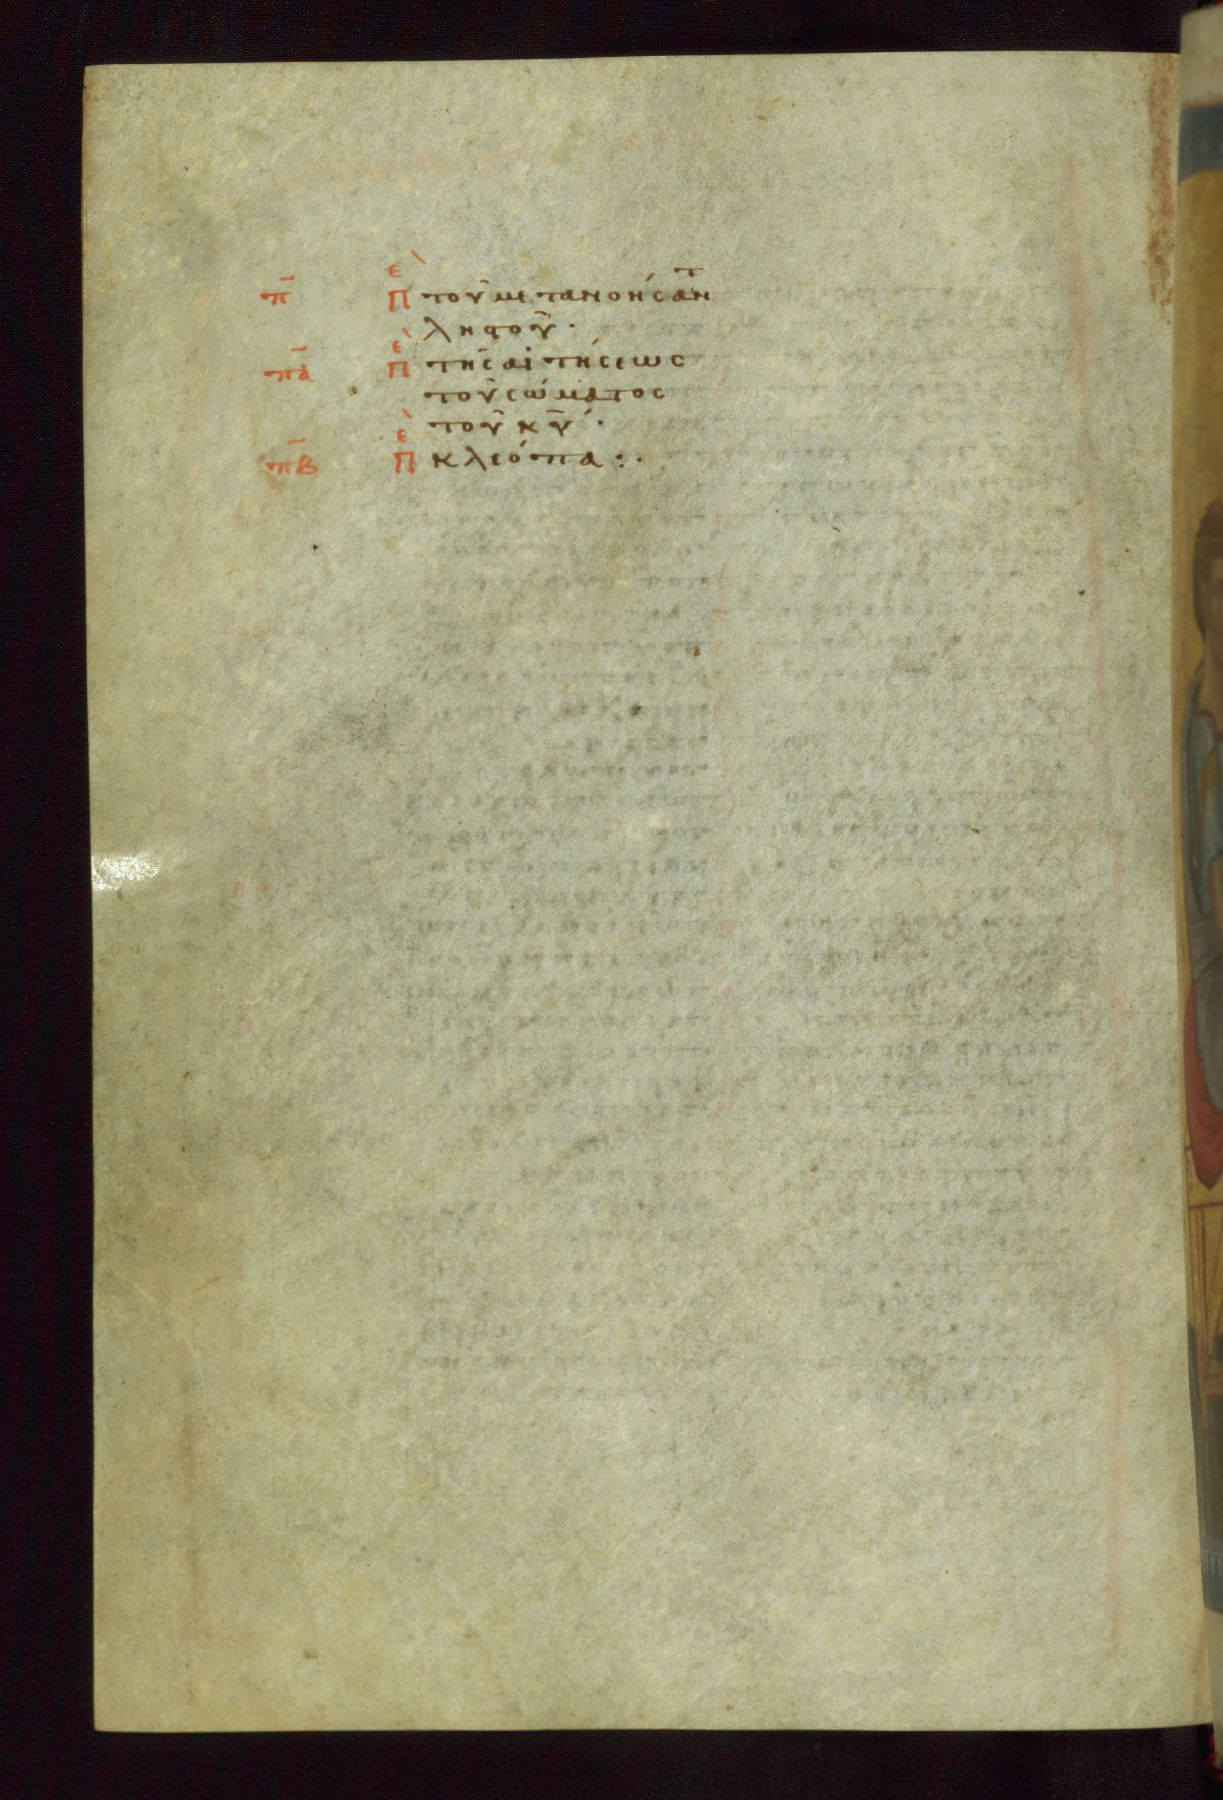 π̄ Πὲ τοῦ μετανοήσαντ
ληστοῦ·
π̄ᾱ Πὲ τῆς αἰτήσεως
τοῦ σώματος
τοῦ κ̄ῡ·
π̄β̄ Πὲ κλεόπα:·